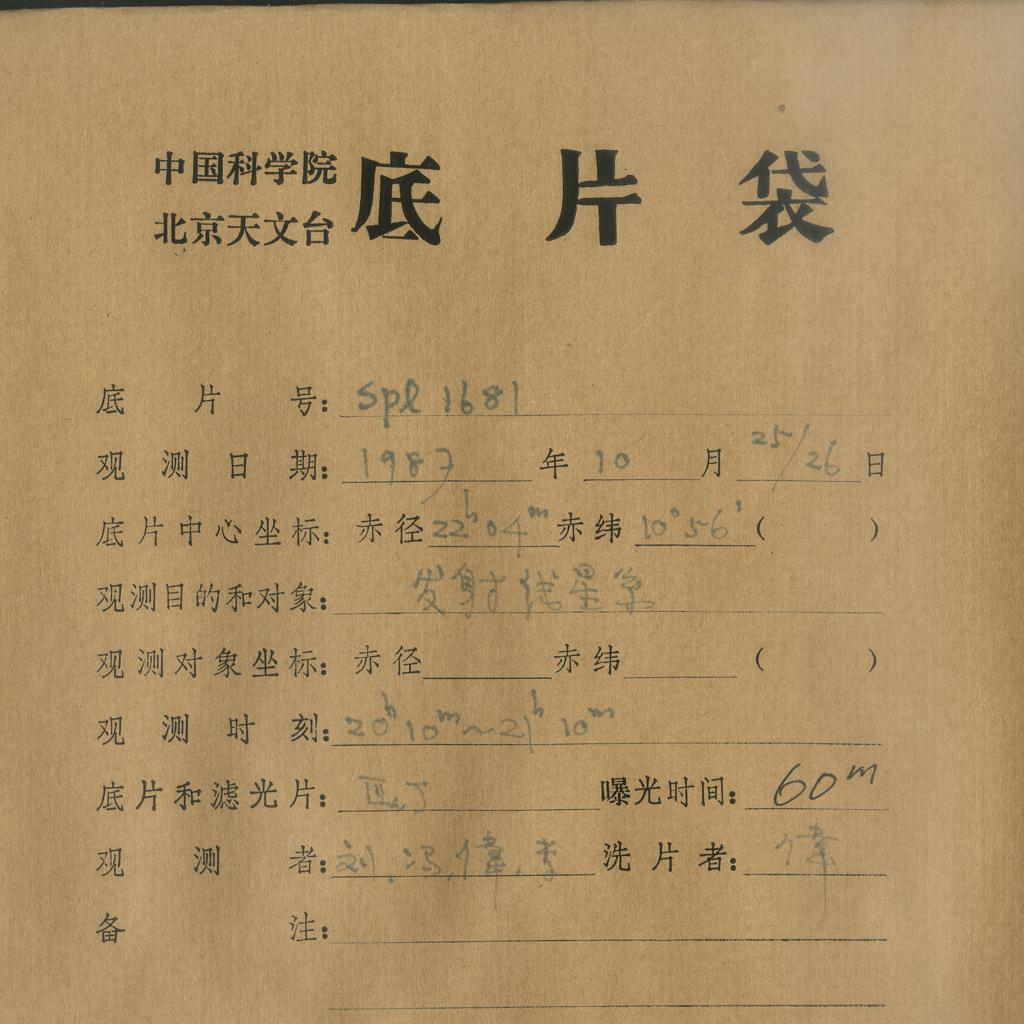 中国科学院
北京天文台
底片袋
底片号: Spl 1681
观测日期: 1987 年 10 月 25/26 日
底片中心坐标: 赤径 22ʰ04ᵐ 赤纬 10°56′ ( )
观测目的和对象: 发射线星系
观测对象坐标: 赤径 赤纬 ( )
观测时刻: 20ʰ10ᵐ~21ʰ10ᵐ
底片和滤光片: 曝光时间: 60ᵐ
观测者: 刘、冯、偉、李 洗片者: 偉
备注: